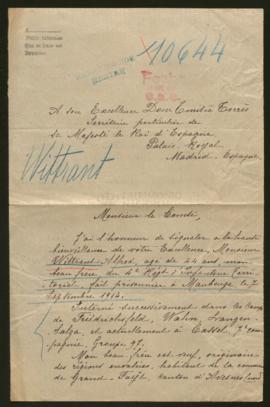 10644
A son Excellence Don Emilio Torrès
Secrétaire particulier de
Sa Majesté le Roi d'Espagne
Palais Royal
Madrid - Espagne
Wittrant
Monsieur le Comte,
J'ai l'honneur de signaler à la haute
bienveillance de votre Excellence, Monsieur
Wittrant Alfred, âgé de 24 ans, mon
beau frère du 4e Régt d'Infanterie
fait prisonnier à Maubeuge le 7
Septembre 1914.
Interné successivement dans les camps
de Friedrichsfeld, Wahn, Langen-
salza, et actuellement à Cassel, 7e com-
pagnie, Groupe
Mon beau frère est veuf, originaire
des régions envahies, habitant de la commune
de Grand-Fayt, canton d'Avesnes